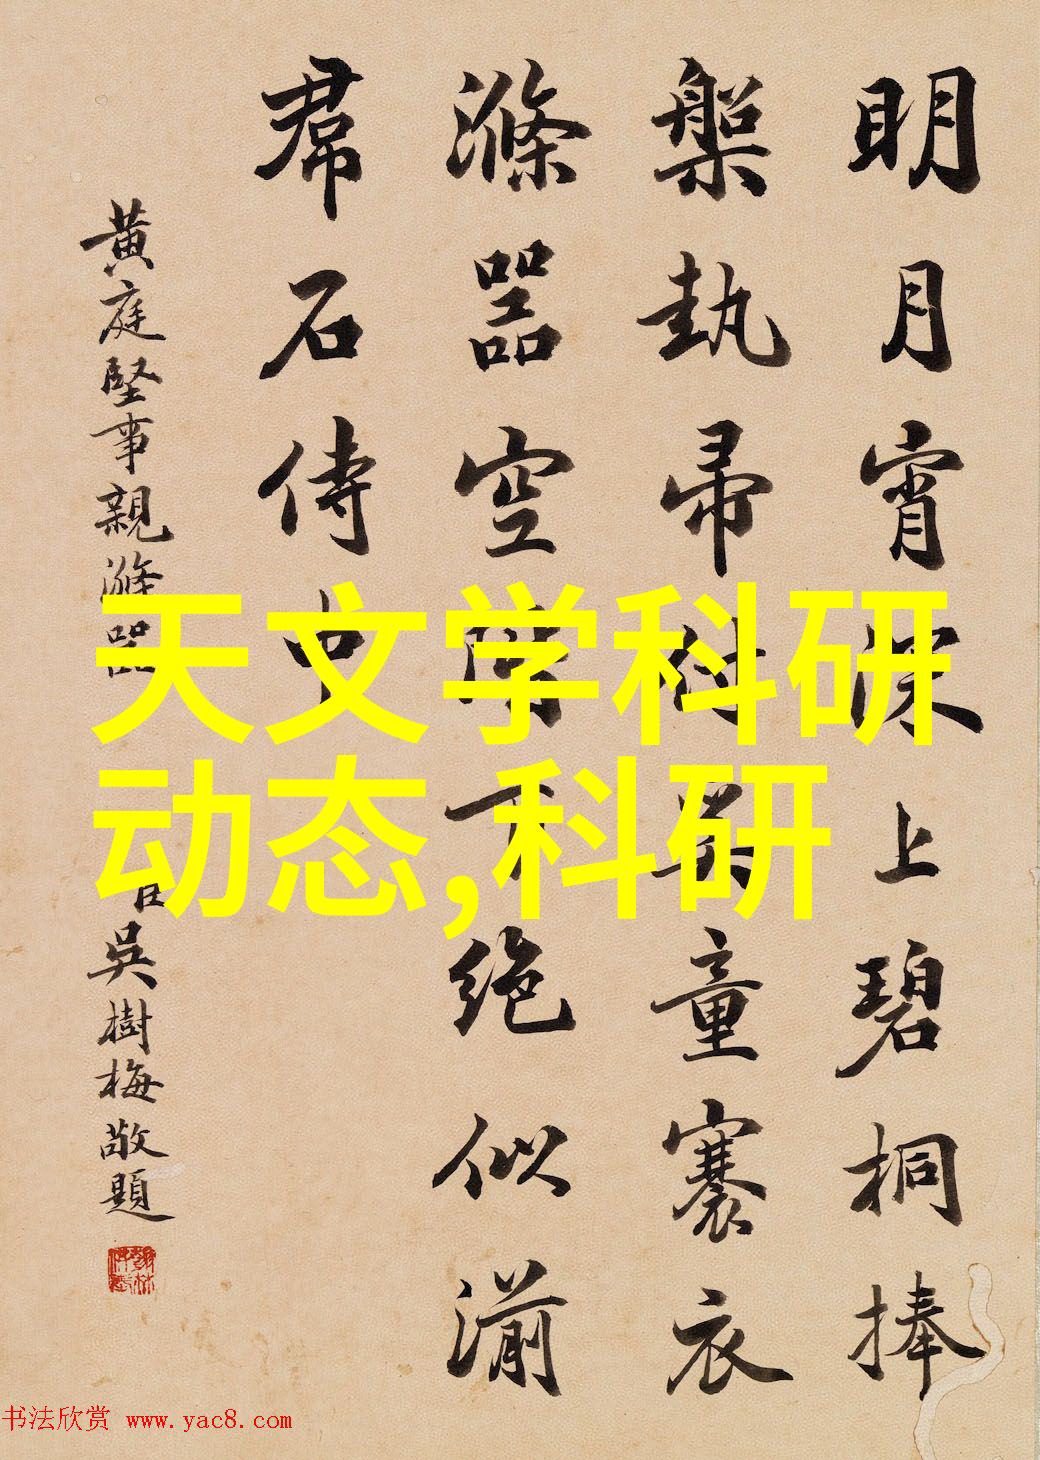 明月宵深上碧桐捧
槃執帚付奚童褰衣
滌器空階下絶似湔
帬石侍中
黃庭堅事親滌器
吳樹梅敬題
天文学科研
动态,科研
书法欣赏 www.yac8.com